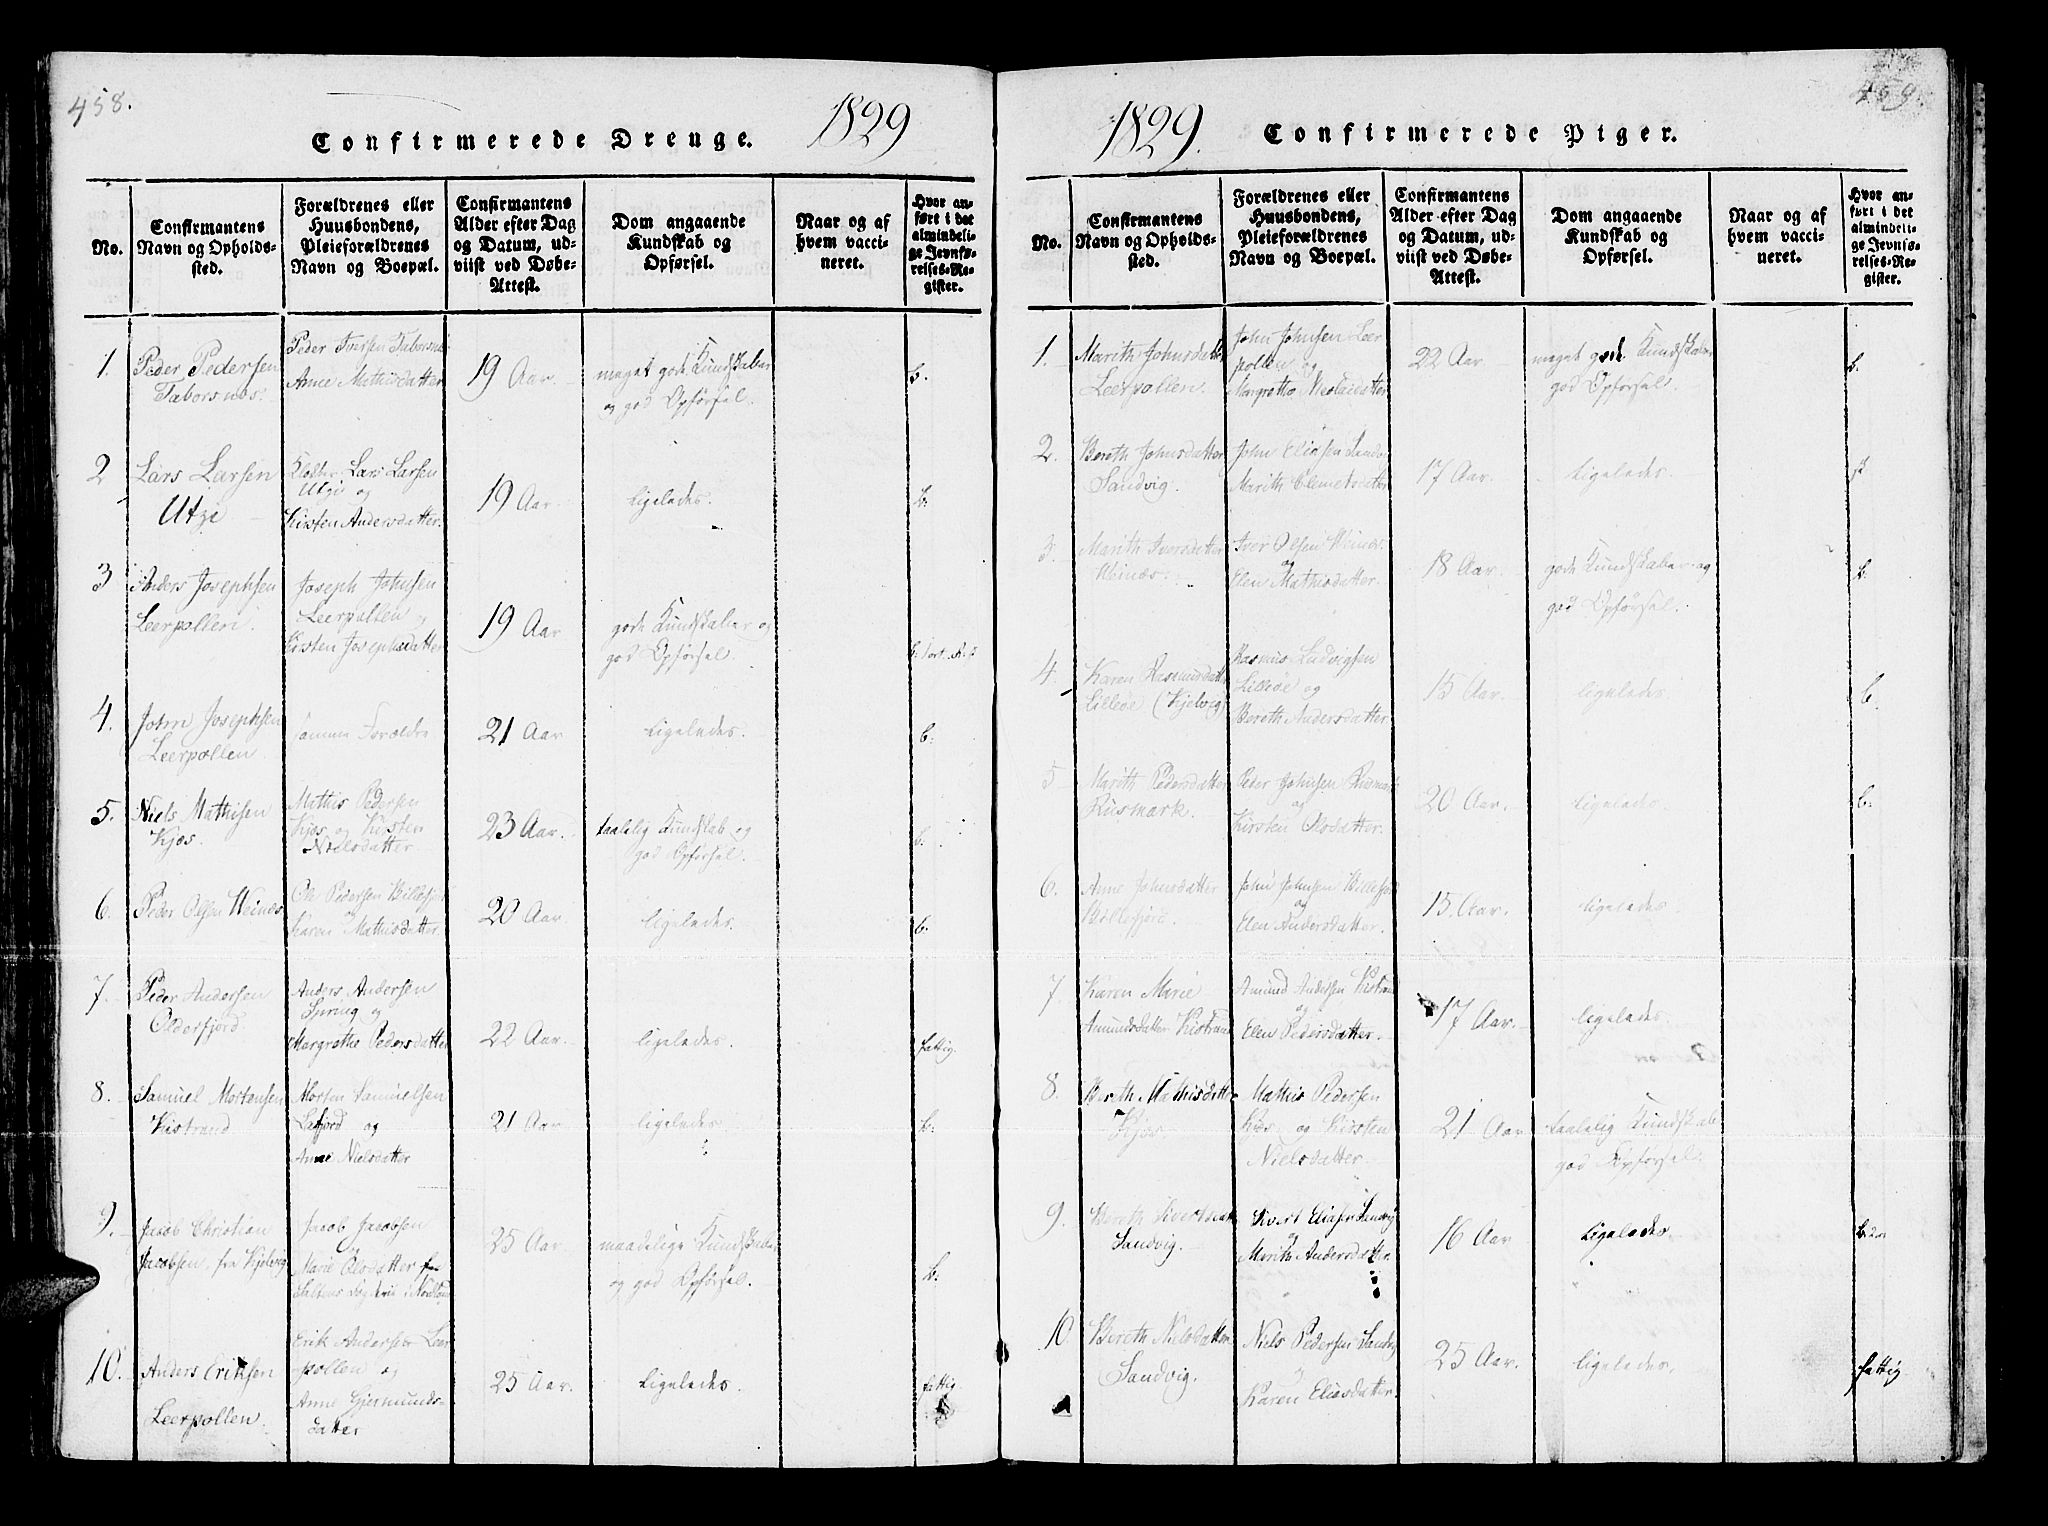 458.
Confirmerede Drenge. 1829
No.
Confirmantens Navn og Opholdssted.
Forældrenes eller Huusbondens, Pleieforældrenes Navn og Boepæl.
Confirmantens Alder efter Dag og Datum, udviist ved Døbe-Attest.
Dom angaaende Kundskab og Opførsel.
Naar og af hvem vaccineret.
Hvor anført i det almindelige Jevnførelses-Register.
1.
Peder Pedersen
Taborsnæs.
Peder Iversen
Anne Mathisdatter
19 Aar.
meget gode Kundskaber
og god Opførsel.
b.
2
Lars Larsen
Utze
Lars Larsen
Utze og
Kirsten Andersdatter.
19 Aar.
ligeledes.
b.
3
Anders Josephsen
Leerpollen.
Joseph Johnsen
Leerpollen og
Kirsten Josephsdatter
19 Aar
gode Kundskaber og
god Opførsel.
4.
John Josephsen
Leerpollen
samme Forældre
21 Aar
ligeledes.
b.
5.
Niels Mathisen
Kjæs.
Mathis Pedersen
Kjæs og Kirsten
Nielsdatter
23 Aar.
taalelig Kundskab og
god Opførsel.
b.
6.
Peder Olsen Weinæs
Ole Pedersen Billefjord
og
Karen Mathisdatter.
20 Aar
ligeledes.
b.
7.
Peder Andersen
Olderfjord.
Anders Andersen
og
Margrethe Pedersdatter
22 Aar.
ligeledes.
fattig.
8.
Samuel Mortensen
Kistrand
Morten Samuelsen
Lafjord og
Anne Nielsdatter
21 Aar
ligeledes
b.
9.
Jacob Christian
Jacobsen, fra Kjelvig
Jacob Jacobsen
og
Marie Olsdatter fra
25 Aar
maadelige Kundskaber
og god Opførsel.
b.
10.
Anders Eriksen
Leerpollen.
Erik Andersen Leer
pollen og
Anne Gjermunds-
datter
25 Aar.
ligeledes.
fattig
459.
1829. Confirmerede Piger.
No.
Confirmantens Navn og Opholdssted.
Forældrenes eller Huusbondens, Pleieforældrenes Navn og Boepæl.
Confirmantens Alder efter Dag og Datum, udviist ved Døbe-Attest.
Dom angaaende Kundskab og Opførsel.
Naar og af hvem vaccineret.
Hvor anført i det almindelige Jevnførelses-Register.
1.
Marith Johnsdatter
Leerpollen.
John Johnsen Leer
pollen og
Margrethe Nicolaidatter
22 Aar
meget gode Kundskaber
god Opførsel.
b.
2.
Bereth Johnsdatter
Sandvig.
John Eliasen Sandv
Marith Clemetsdatter
17 Aar.
ligeledes
3.
Marith Iversdatter
Weinæs.
Iver Olsen Weinæs.
og
Elen Mathisdatter.
18 Aar.
gode Kundskaber og
god Opførsel.
b.
4.
Karen Rasmusdatter
Lilleøe (Kjelvig)
Rasmus Ludvigsen
Lilleøe og
Bereth Andersdatter
15 Aar.
ligeledes
b.
5
Marith Pedersdatter
Rusmark.
Peder Johnsen Rusmark
og
Kirsten Olsdatter.
20 Aar.
ligeledes.
b.
6.
Anne Johnsdatter
Billefjord.
John Johnsen Billefjor
og
Elen Andersdatter.
15. Aar.
ligeledes.
7
Karen Marie
Amundsdatter Kistrand
Amund Andersen Kistrand
og
Elen Pedersdatter.
17 Aar.
ligeledes.
8.
Bereth Mathisdatter
Kjæs
Mathis Pedersen
Kjæs og Kirsten
Nielsdatter.
21 Aar
taalelig Kundskab
god Opførsel.
9.
Bereth Sivertsdatt
Sandvig.
Sivert Eliasen Sandvig
og
Marith Andersdatter
16 Aar
ligeledes.
10
Bereth Nielsdatter
Sandvig.
Niels Pedersen Sandvig
og
Karen Eliasdatter.
25 Aar.
ligeledes,
fattig